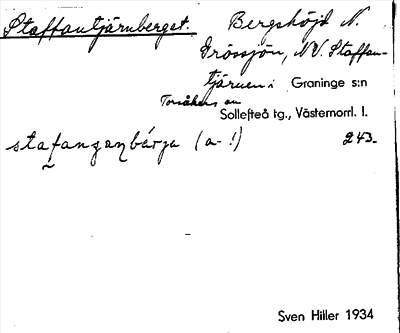 Staffantjärnberget. Bergshöjd N.
Grössjön, NV. Staffan-
tjärnen i Graninge s:n
Torsåkers
Sollefteå tg., Västernorrl. l.
243.
(a-!)
Sven Hiller 1934